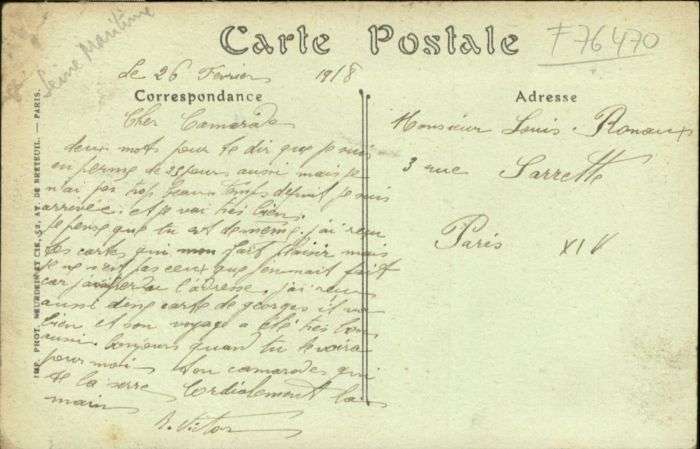 Seine Maritime
Carte Postale
F 76470
le 26 Février 1918
Correspondance
Adresse
Cher Camarade
deux mots pour te dir que je suis
en perme de 25 jours aussi mais je
n'ai pas trop beaux temps depuit je suis
arrivée et je vai très bien.
Je pense que tu est de meme. j'ai reçu
tes cartes qui mon fait plaisir mais
je ne sait pas ceux que j'en nait fait
car j'ai perdu l'adresse. j'ai reçu
aussi deux carte de georges il va
bien et son voyage a été très bons
aussi. bonjours quand tu le voira
pour moi ton camarades qui
te la serre Cordialement la
main
Victor
Monsieur Louis
3 rue Sarrette
Paris XIV
IMP. PHOT. NEURDEIN ET CIE, 52, AV. DE BRETEUIL. — PARIS.